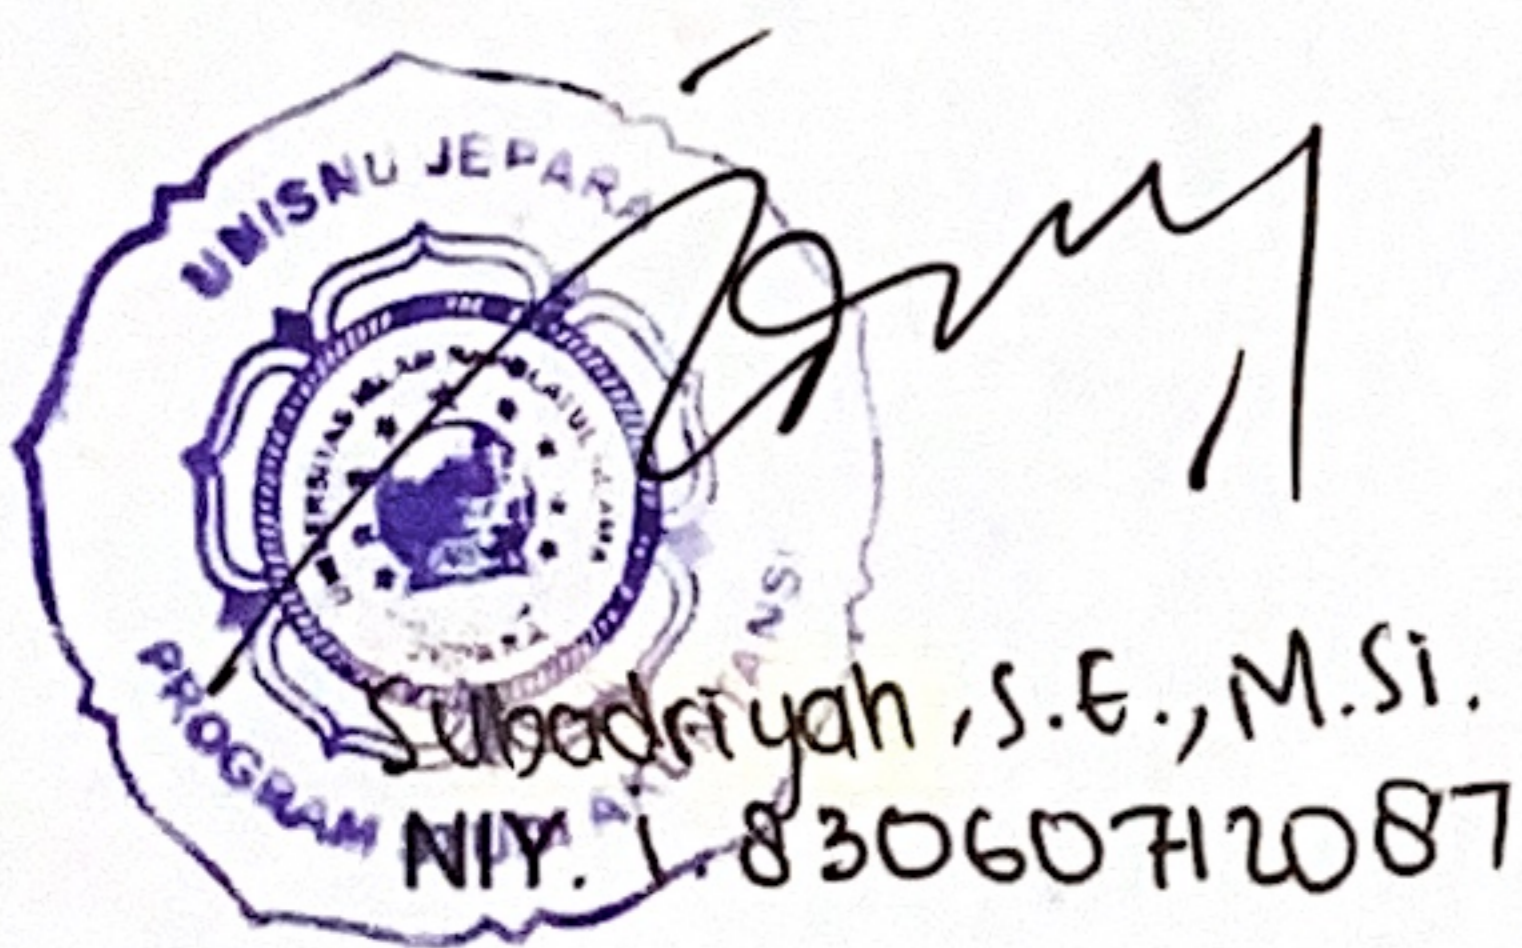 UNISNU JEPARA
UNIVERSITAS ISLAM NAHDLATUL ULAMA
JEPARA
PROGRAM STUDI AKUNTANSI
Subadriyah, S.E., M.Si.
NIY. 1.830607 12 087